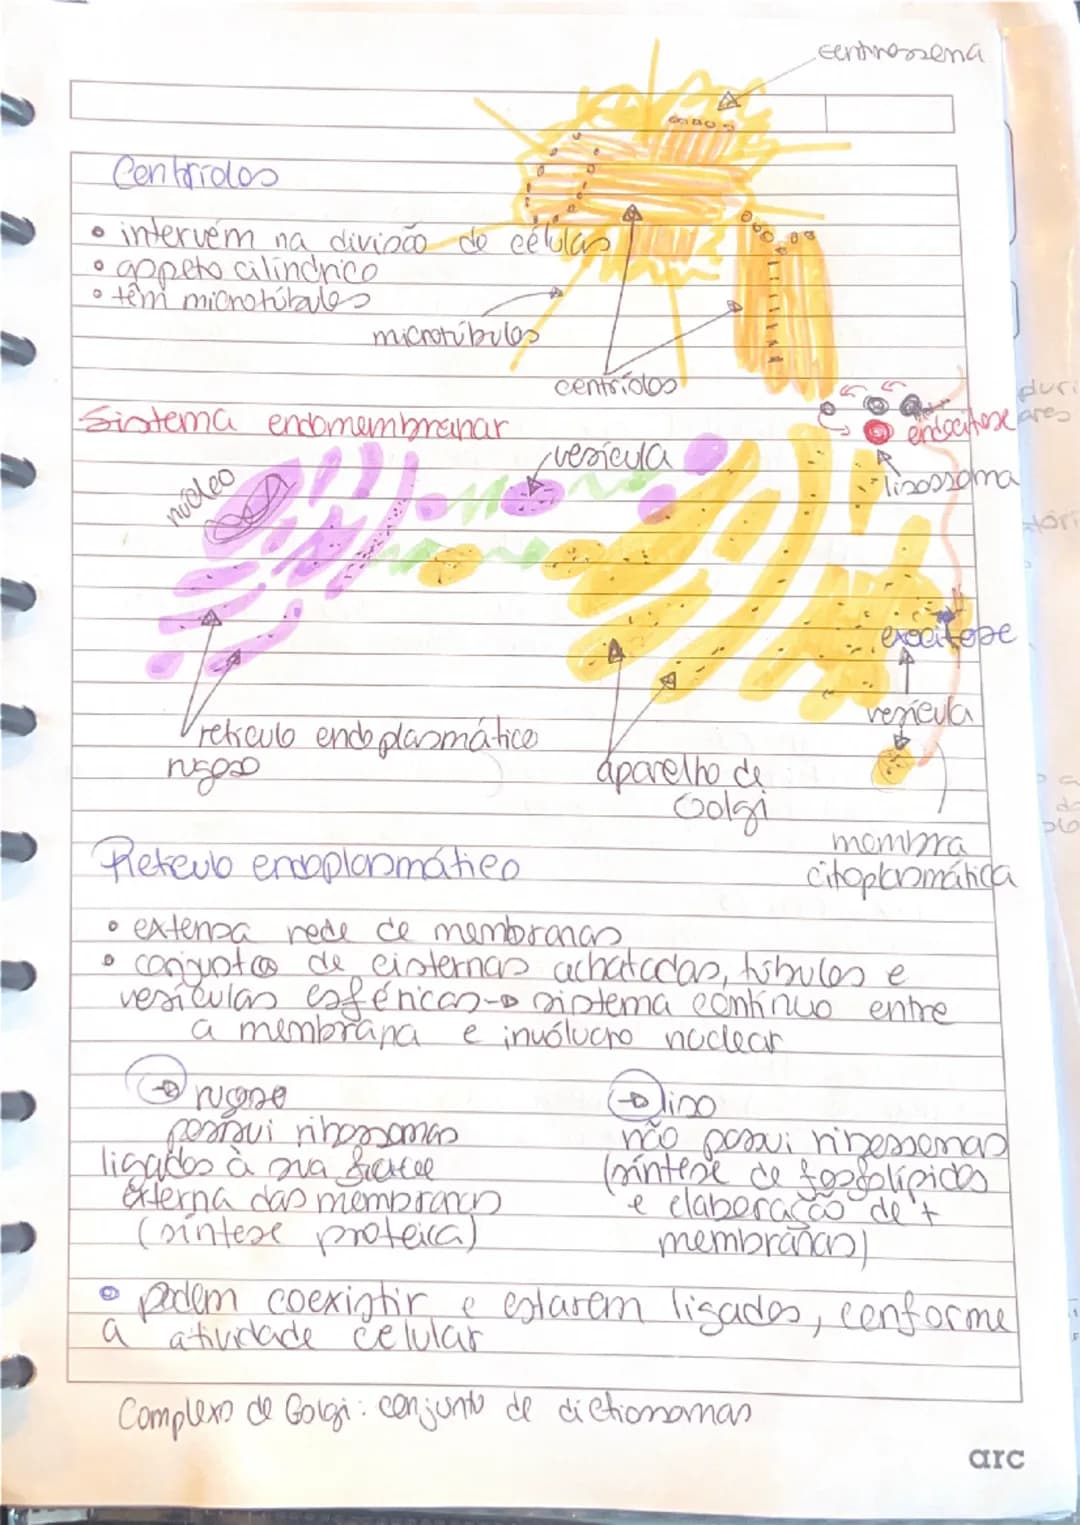 centrossena
Centríolos
• intervém na divisão de células
• aspeto cilíndrico
• têm microtúbules
microtúbulos
centríolos
Sistema endomembranar
endocitose
vesícula
lisossoma
núcleo
exocitose
vesícula
retículo endoplasmático
rugoso
aparelho de
Golgi
membra
citoplasmática
Retículo endoplasmático
• extensa rede de membranas
• conjunto de cisternas achatadas, túbulos e
vesículas esféricas → sistema contínuo entre
a membrana e invólucro nuclear
→ rugoso
possui ribossomas
ligados à sua
externa das membranas
(síntese proteica)
→ liso
não possui ribossomas
(síntese de fosfolípidos
e elaboração de +
membranas)
• podem coexistir e estarem ligados, conforme
a atividade celular
Complexo de Golgi: conjunto de dictiossomas
arc